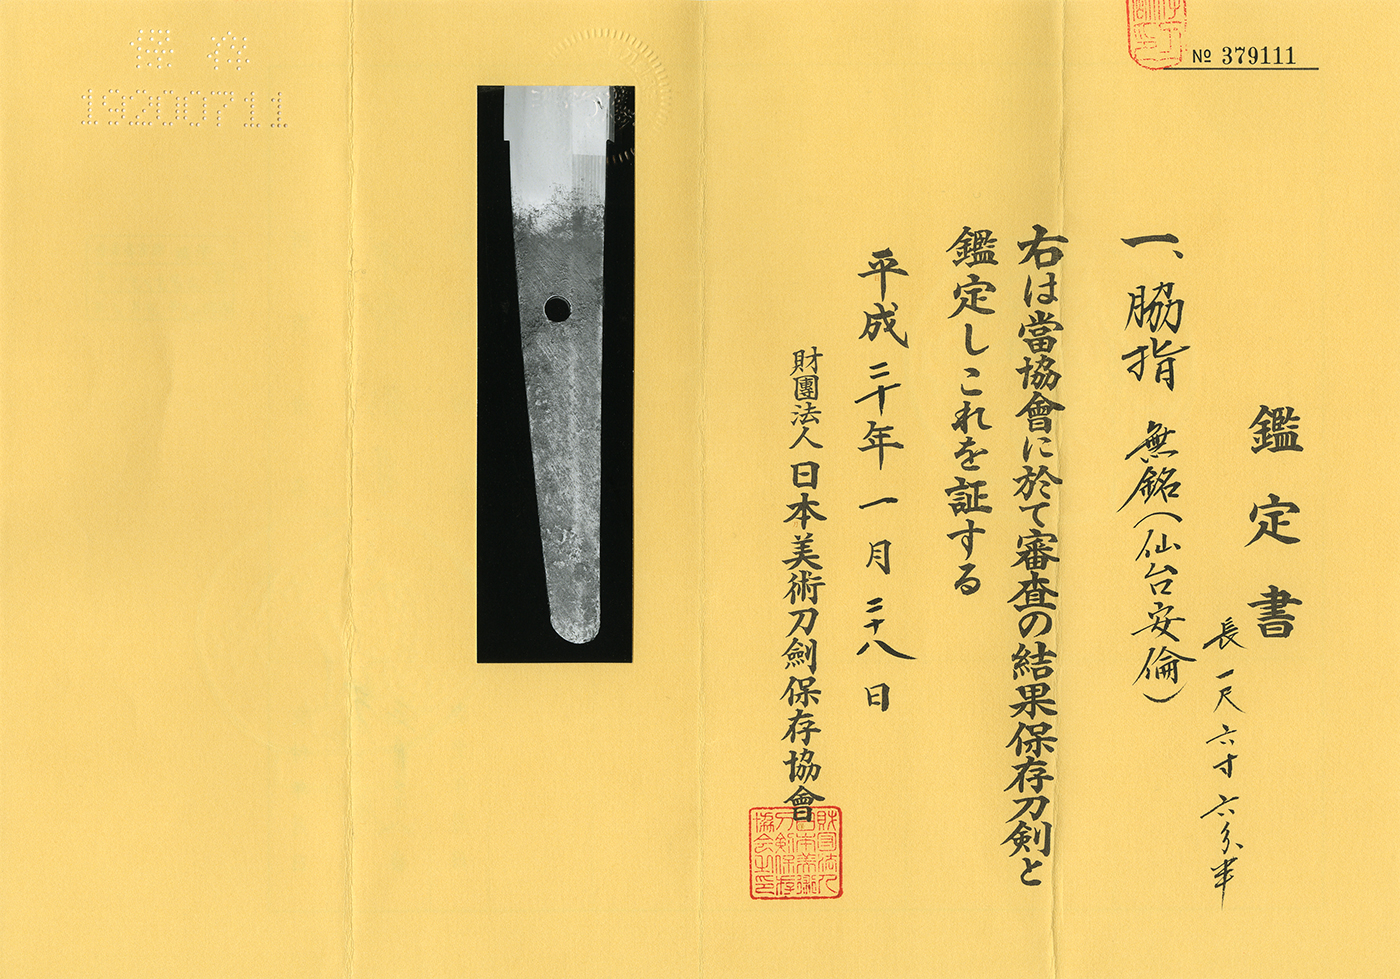 № 379111
鑑定書
長一尺六寸六分半
一、脇指 無銘(仙台安倫)
右は當協會に於て審査の結果保存刀剣と
鑑定しこれを証する
平成二十年一月二十八日
財團法人日本美術刀劍保存協會
財団法人
日本美術
刀剣保存
協会之印
保存
19200711